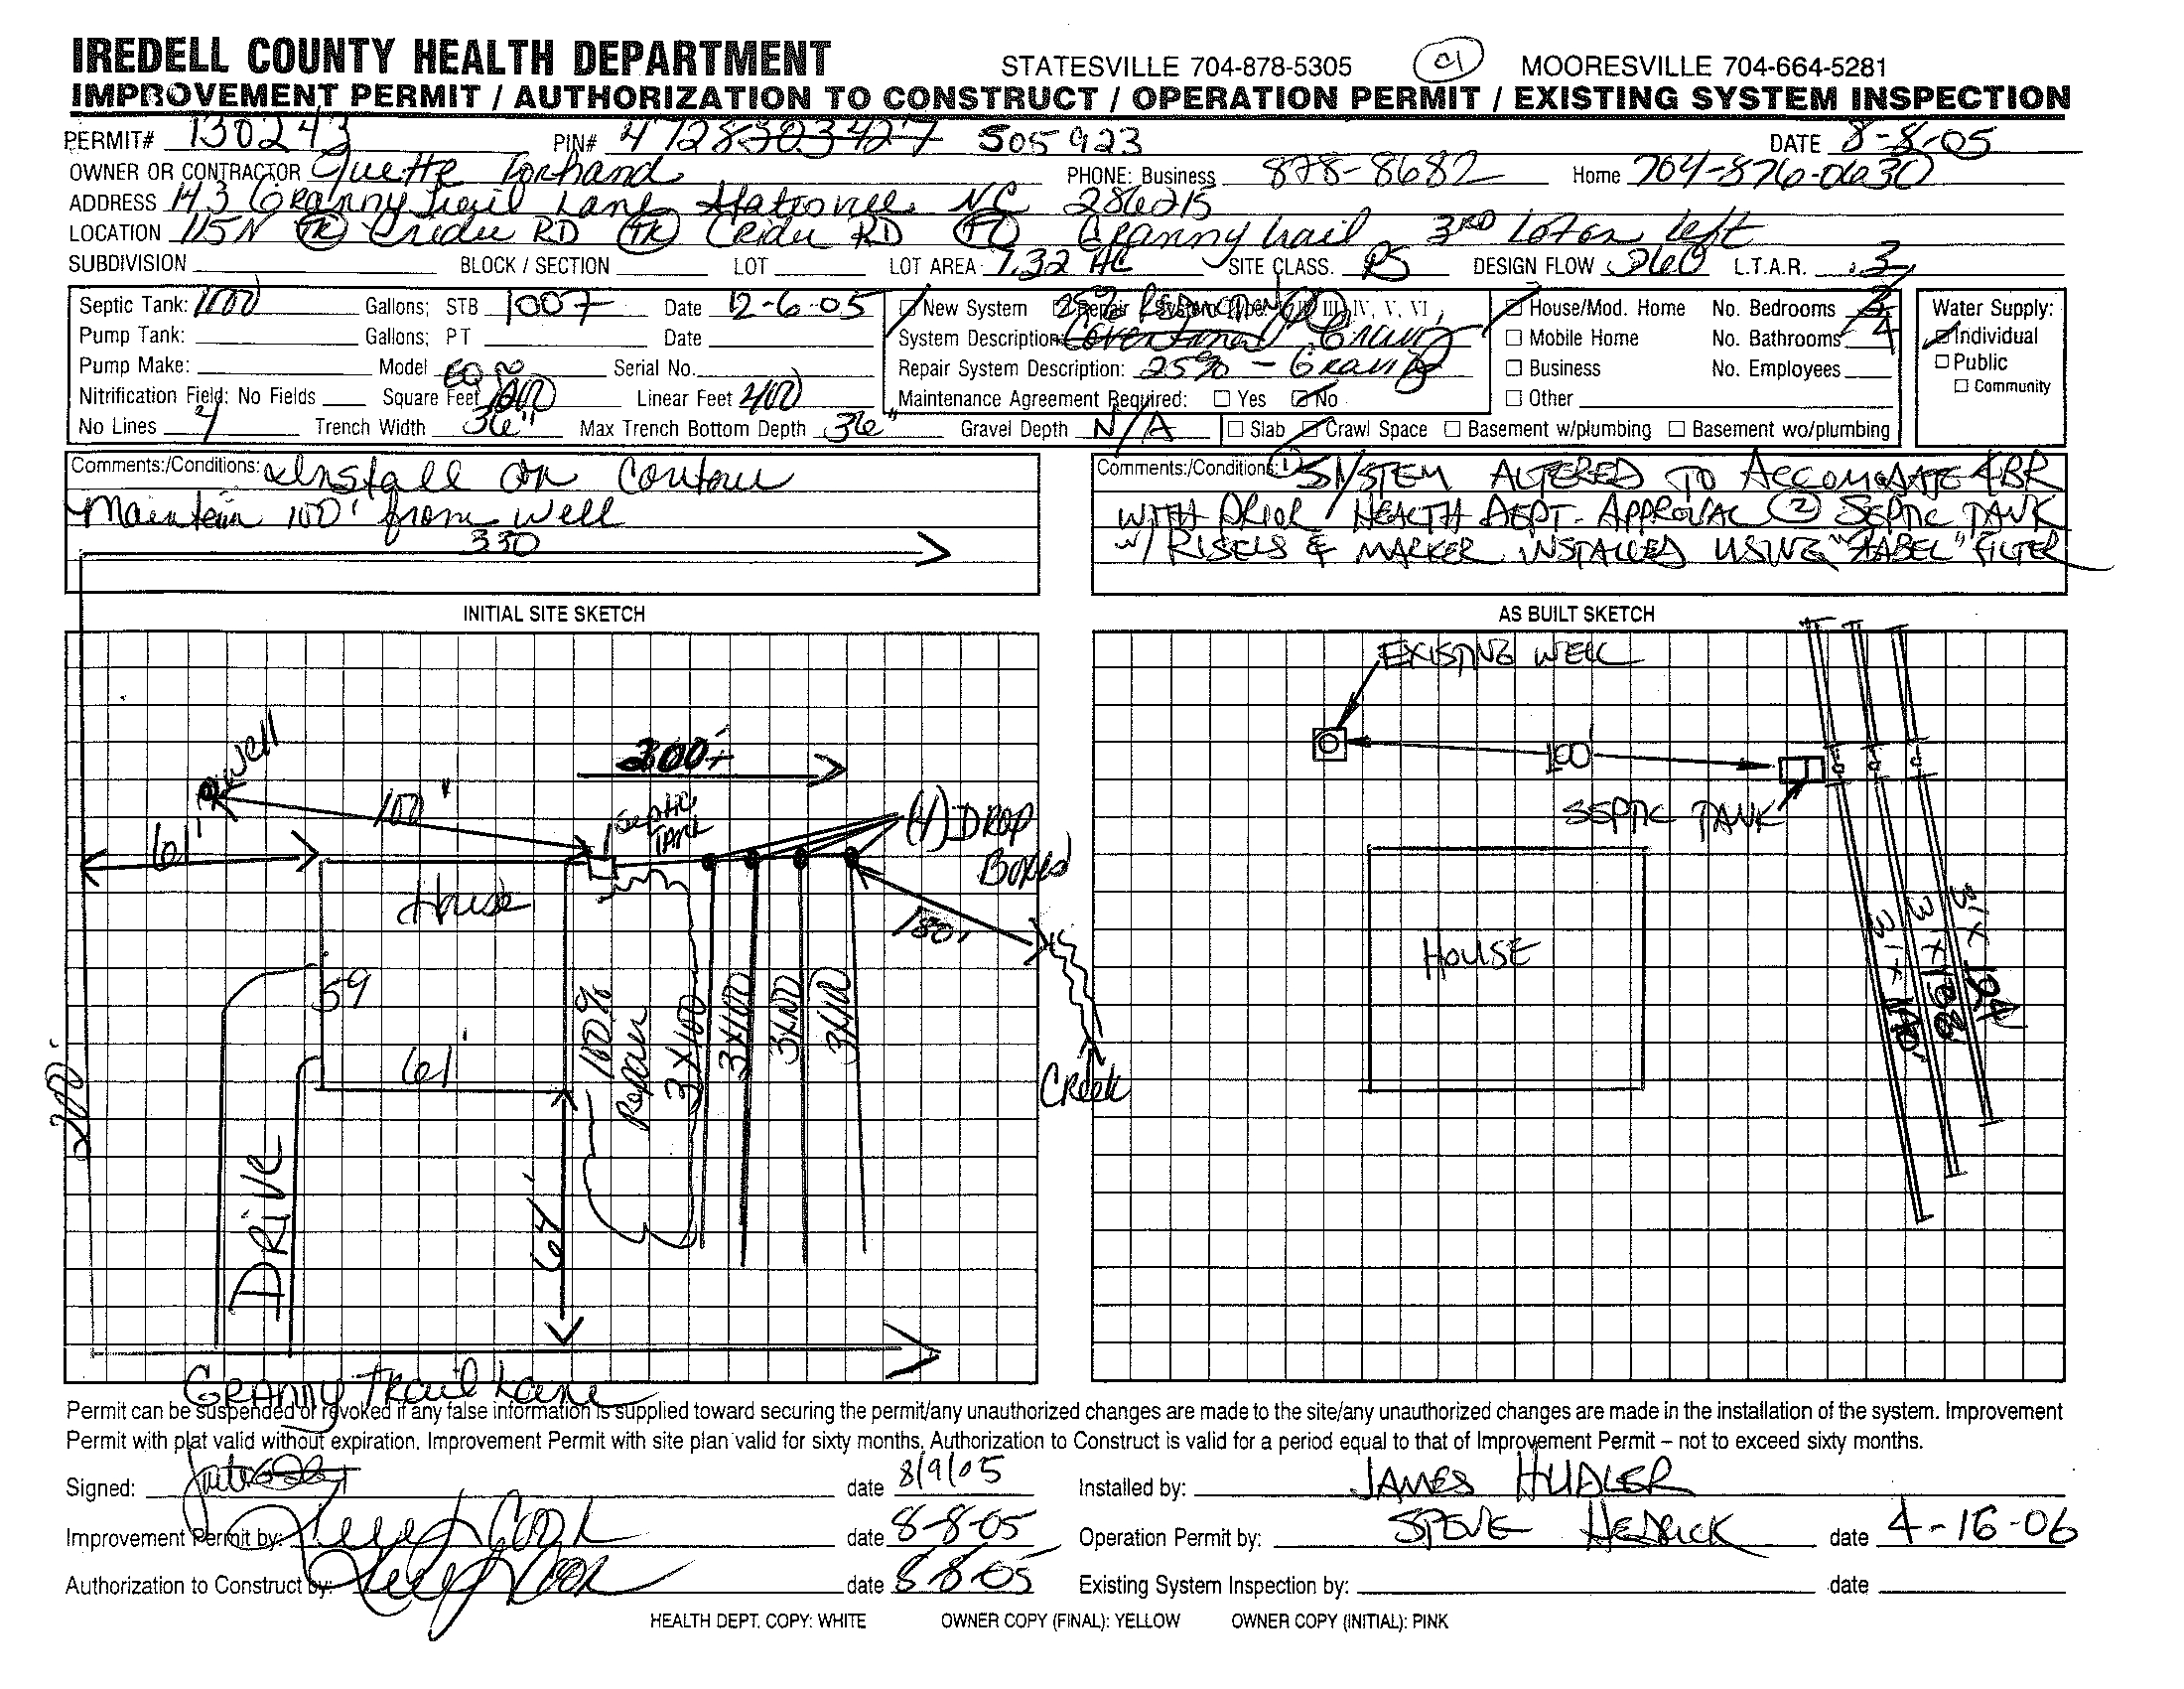 IREDELL COUNTY HEALTH DEPARTMENT STATESVILLE 704-878-5305 01 MOORESVILLE 704-664-5281
IMPROVEMENT PERMIT / AUTHORIZATION TO CONSTRUCT / OPERATION PERMIT / EXISTING SYSTEM INSPECTION
PERMIT# 130243 PIN# 4728303427 505923 DATE 8-8-05
OWNER OR CONTRACTOR PHONE: Business 878-8682 Home 704-876-0630
ADDRESS 143 Granny Trail Lane NC
LOCATION 115 N TR Crider RD TR Crider RD Granny trail 3RD Lot on left
SUBDIVISION BLOCK / SECTION LOT LOT AREA 1.32 AC SITE CLASS. PS DESIGN FLOW 360 L.T.A.R. .3
Septic Tank: 1000 Gallons; STB 1007 Date 12-6-05 New System Repair System Type: III, IV, V, VI, House/Mod. Home No. Bedrooms Water Supply:
Pump Tank: Gallons; PT Date System Description: Conventional Gravity Mobile Home No. Bathrooms 4 Individual
Pump Make: Model EQ Serial No. Repair System Description: 25% - Gravity Business No. Employees Public
Nitrification Field: No Fields Square Feet 1200 Linear Feet 400 Maintenance Agreement Required: Yes No Other Community
No Lines 4 Trench Width 36" Max Trench Bottom Depth 36" Gravel Depth N/A Slab Crawl Space Basement w/plumbing Basement wo/plumbing
Comments:/Conditions: Install on Contour
Maintain 100' from well
330
Comments:/Conditions: 1 SYSTEM ALTERED TO ACCOMODATE 4BR
WITH PRIOR HEALTH DEPT. APPROVAL 2 SEPTIC TANK
W/ RISERS & MARKER INSTALLED USING "ZABEL" FILTER
INITIAL SITE SKETCH
Well
300'
100'
Septic
Tank
(4) Drop
Boxes
61'
House
180'
59
61'
100%
Repair
3X100
3X100
3X100
3X100
Creek
200'
64'
DRIVE
Granny Trail Lane
AS BUILT SKETCH
EXISTING WELL
100'
SEPTIC TANK
HOUSE
3' X
3' X
3' X
Permit can be suspended or revoked if any false information is supplied toward securing the permit/any unauthorized changes are made to the site/any unauthorized changes are made in the installation of the system. Improvement
Permit with plat valid without expiration. Improvement Permit with site plan valid for sixty months. Authorization to Construct is valid for a period equal to that of Improvement Permit – not to exceed sixty months.
Signed: date 8/9/05 Installed by: JAMES
Improvement Permit by: date 8-8-05 Operation Permit by: STEVE HEDRICK date 4-16-06
Authorization to Construct by: date 8-8-05 Existing System Inspection by: date
HEALTH DEPT. COPY: WHITE OWNER COPY (FINAL): YELLOW OWNER COPY (INITIAL): PINK